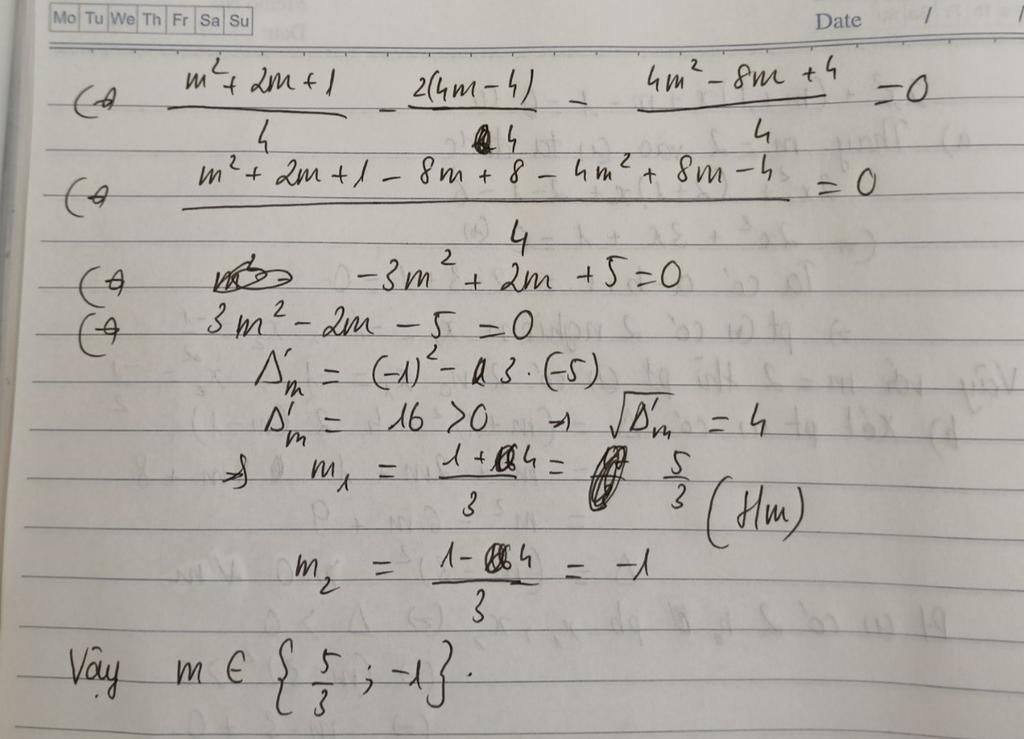 Mo Tu We Th Fr Sa Su
Date / /
(=) (m² + 2m + 1)/4 - 2(4m - 4)/4 - (4m² - 8m + 4)/4 = 0
(=) (m² + 2m + 1 - 8m + 8 - 4m² + 8m - 4)/4 = 0
(=) -3m² + 2m + 5 = 0
(=) 3m² - 2m - 5 = 0
Δ'm = (-1)² - 3 · (-5)
Δ'm = 16 > 0 → √Δ'm = 4
=> m₁ = (1 + 4)/3 = 5/3
(t/m)
m₂ = (1 - 4)/3 = -1
Vậy m ∈ {5/3 ; -1}.